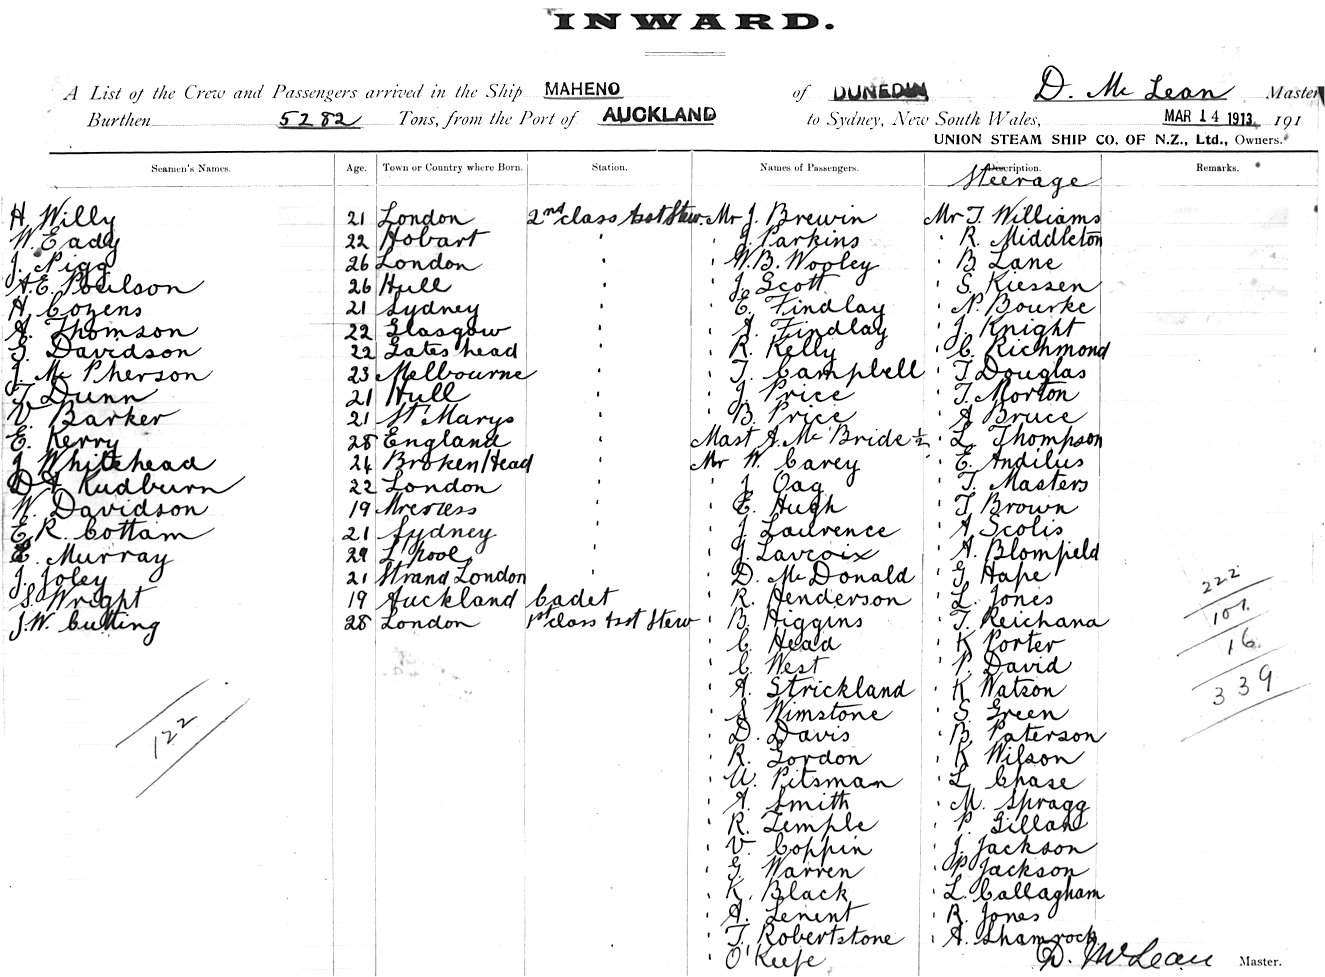 INWARD.
A List of the Crew and Passengers arrived in the Ship MAHENO of DUNEDIN D. Mc Lean Master
Burthen 5282 Tons, from the Port of AUCKLAND to Sydney, New South Wales, MAR 14 1913 191
UNION STEAM SHIP CO. OF N.Z., Ltd., Owners.
Seamen's Names. Age. Town or Country where Born. Station. Names of Passengers. Description. Remarks.
Steerage
H. Willy 21 London 2nd class Asst Stew. Mr J. Brewin Mr T. Williams
W. Eady 22 Hobart " " J. Parkins " R. Middleton
J. Pigg 26 London " " W.B. Wooley " B. Lane
A.E. Poulson 26 Hull " " J. Scott " S. Kiessen
H. Cozens 21 Sydney " " E. Findlay " N. Bourke
A. Thomson 22 Glasgow " " A. Findlay " J. Knight
S. Davidson 22 Gateshead " " R. Kelly " C. Richmond
J. Mc Pherson 23 Melbourne " " T. Campbell " T. Douglas
T. Dunn 21 Hull " " J. Price " T. Morton
V. Barker 21 St Marys " " B. Price " A. Bruce
E. Kerry 28 England " Mast A. Mc Bride ½ " L. Thompson
J. Whitehead 24 Broken Head " Mr W. Carey " E. Andilus
D A Rudburn 22 London " " J. Oag " T. Masters
W. Davidson 19 " " E. Hugh " T. Brown
E. R. Cottam 21 Sydney " " J. Laurence " A. Scolis
E. Murray 29 L'pool " " J. Lavroix " A. Blomfield
J. Joley 21 Strand London " " D. Mc Donald " G. Hape
S. Wright 19 Auckland Cadet " R. Henderson " L. Jones
J.W. Cutting 28 London 1st class Asst Stew " B. Higgins " T. Reichana
" C. Head " K. Porter
" C. West " P. David
" A. Strickland " K. Watson
" S. Wimstone " S. Green
" D. Davis " B. Paterson
" R. Gordon " K. Wilson
" W. Pitsman " L. Chase
" A. Smith " M. Spragg
" R. Temple " P. Gillan
" V. Coppin " J. Jackson
" G. Warren " P. Jackson
" K. Black " L. Callagham
" A. Lenent " R. Jones
" T. Robertstone " A. Shamrock
" O'Keefe D. McLean Master.
122
222
101
16
339